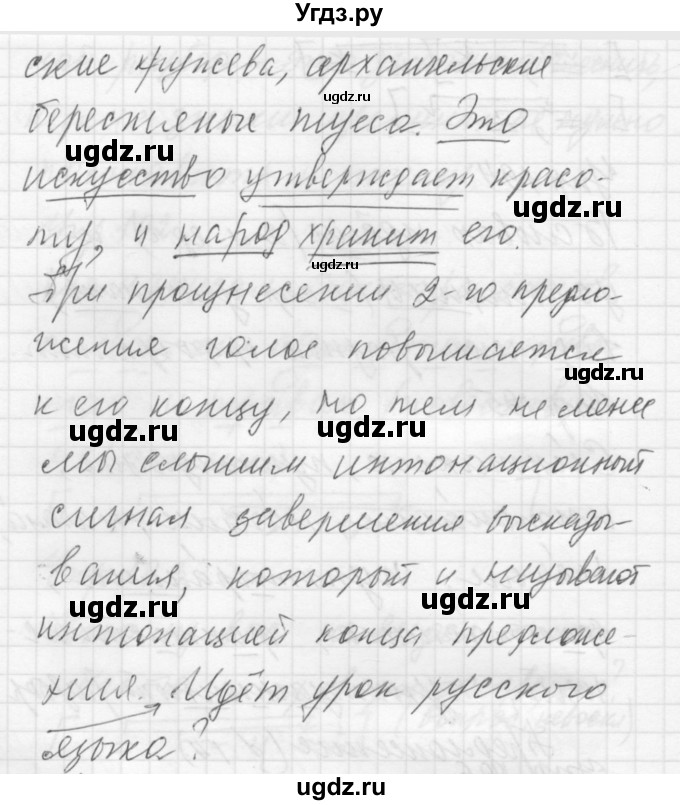 Угдз.ру
ские кружева, архангельские
ugdz.ru
берестяные туеса. Это
ugdz.ru ugdz.ru
искусство утверждает красо-
ugdz.ru
ту, и народ хранит его.
ugdz.ru
При процнесении 2-го предло-
жения голос повышается
ugdz.ru
к его концу, но тем не менее
ugdz.ru ugdz.ru
мы слышим интонационный
сигнал завершения высказы-
вания, который и называют
ugdz.ru ugdz.ru
интонацией конца предложе-
ния. Идёт урок русского
языка?
ugdz.ru ugdz.ru